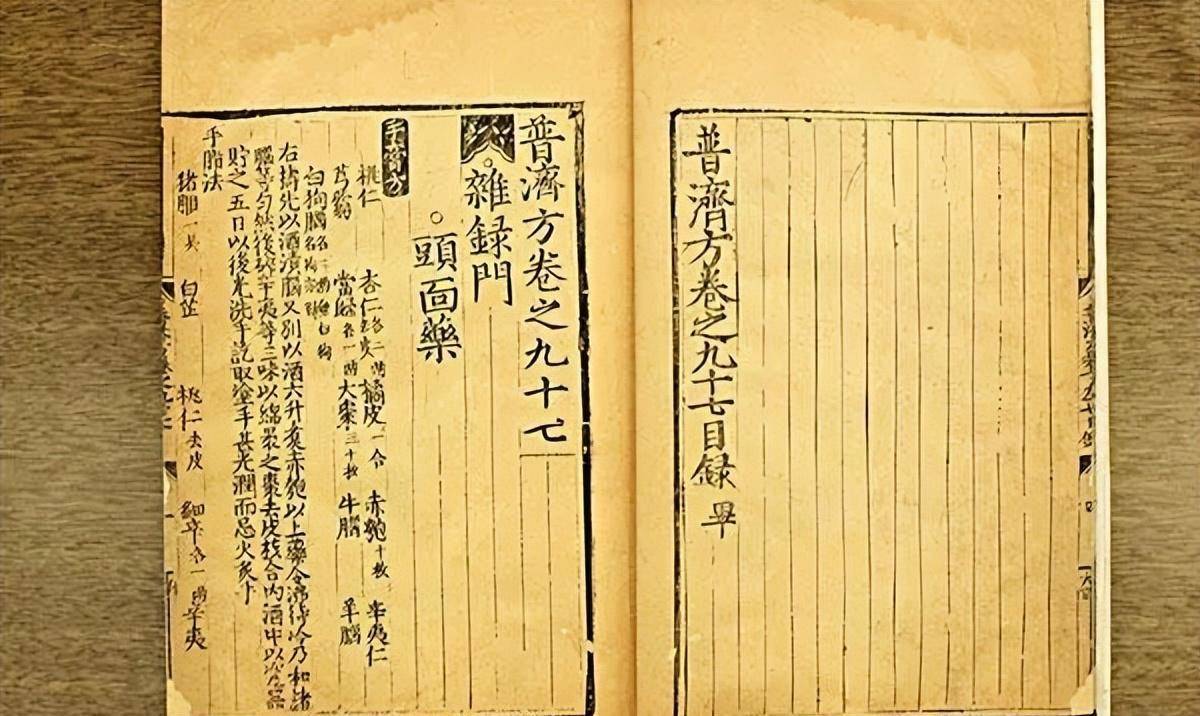 普濟方卷之九十七目録 畢
普濟方卷之九十七
雜録門
頭面藥
桃仁 杏仁各二兩去皮 橘皮一令 赤匏十枚 辛夷仁
芎藭 當歸各一兩 大棗三十枚 牛腦 羊腦
白狗腦
右擣先以酒漬腦又別以酒六升煮赤匏以上藥令沸待冷乃和諸
腦等勻然後碎辛夷等三味以綿裹之棗去皮核合內酒中以瓷器
貯之五日以後先洗手訖取塗手甚光潤而忌火炙手
手脂法
猪胆一具 白芷 桃仁去皮 細辛各一兩 辛夷